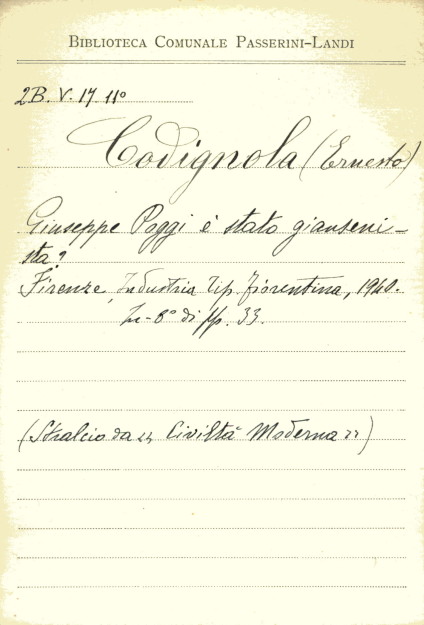 BIBLIOTECA COMUNALE PASSERINI-LANDI
2B. V. 17. 11º
Codignola (Ernesto)
Giuseppe Poggi è stato gianseni-
sta?
Firenze, Industria Tip. Fiorentina, 1940.
In-8º di pp. 33.
(Stralcio da « Civiltà Moderna »)